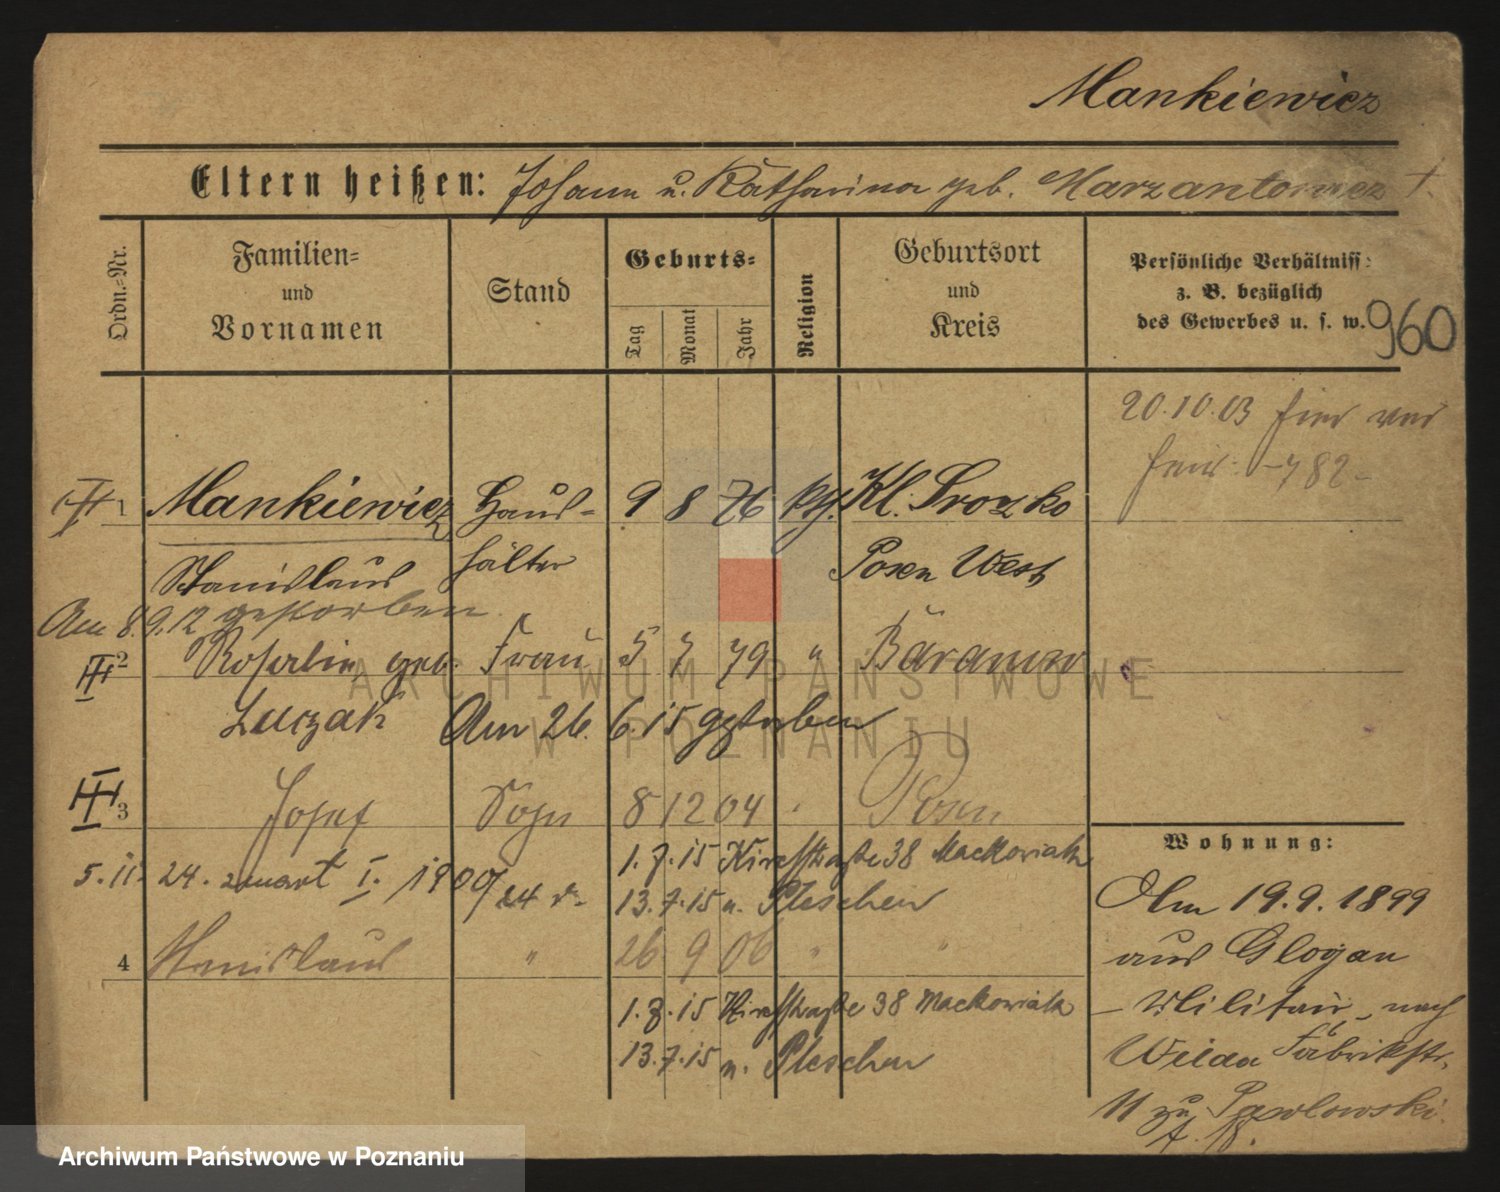 Mankiewicz
Eltern heißen: Johann u. Katharina geb. Marzantowicz †
Ordn.-Nr.
Familien-
und
Vornamen
Stand
Geburts-
Tag
Monat
Jahr
Religion
Geburtsort
und
Kreis
Persönliche Verhältniss
z. B. bezüglich
des Gewerbes u. s. w.
960
20.10.03
-782-
III 1 Mankiewicz Haus- 9 8 76 kth. Kl. Sroczko
Stanislaus hälter Posen West
Am 8.9.12 gestorben
III 2 Rosalie geb. Frau 5 7 79 " Baranowo
Luczak Am 26. 6. 15 gestorben
III 3 Josef Sohn 8 12 04 " Posen
1.7.15 Kirchstraße 38 Mackowiak
5. 11. 24. I. 1900
13.7.15 n. Pleschen
4 Stanislaus " 26 9 06 " "
1.7.15 Kirchstraße 38 Mackowiak
13.7.15 n. Pleschen
Wohnung:
Am 19.9.1899
aus Glogau
- Militair - nach
Wilda Fabrikstr.
11 zu Pawlowski
ARCHIWUM PAŃSTWOWE
W POZNANIU
Archiwum Państwowe w Poznaniu